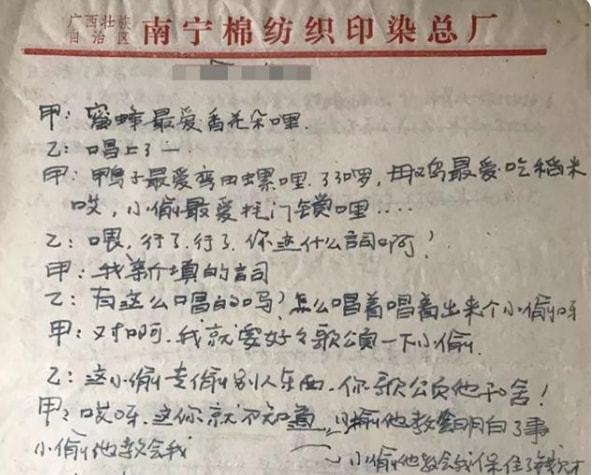 广西壮族
自治区 南宁棉纺织印染总厂
甲：蜜蜂最爱香花朵哩.
乙：唱上了一
甲：鸭子最爱弯田螺哩.了啰，母鸡最爱吃稻米
哎，小偷最爱挂门锁哩....
乙：喂，行了.行了.你这什么词啊！
甲：我新填的词
乙：有这么唱的吗？怎么唱着唱着出来个小偷呀
甲：对啊.我就要好好歌颂一下小偷.
乙：这小偷专偷别人东西.你歌颂他干啥！
甲：哎呀.这你就不知道 小偷他教会明白了事
小偷他教会我 小偷他教会我保住了钱财